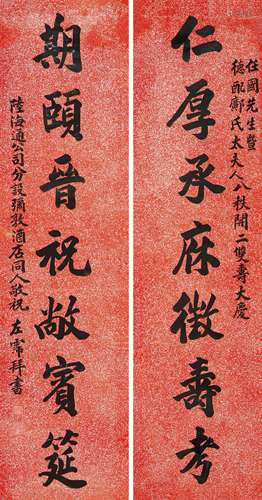 任國先生暨
德配鄺氏太夫人八秩開二雙壽大慶
仁厚承庥徵壽考
期頤晉祝敞賓筵
陸海通公司分設彌敦酒店同人敬祝 左霈拜書